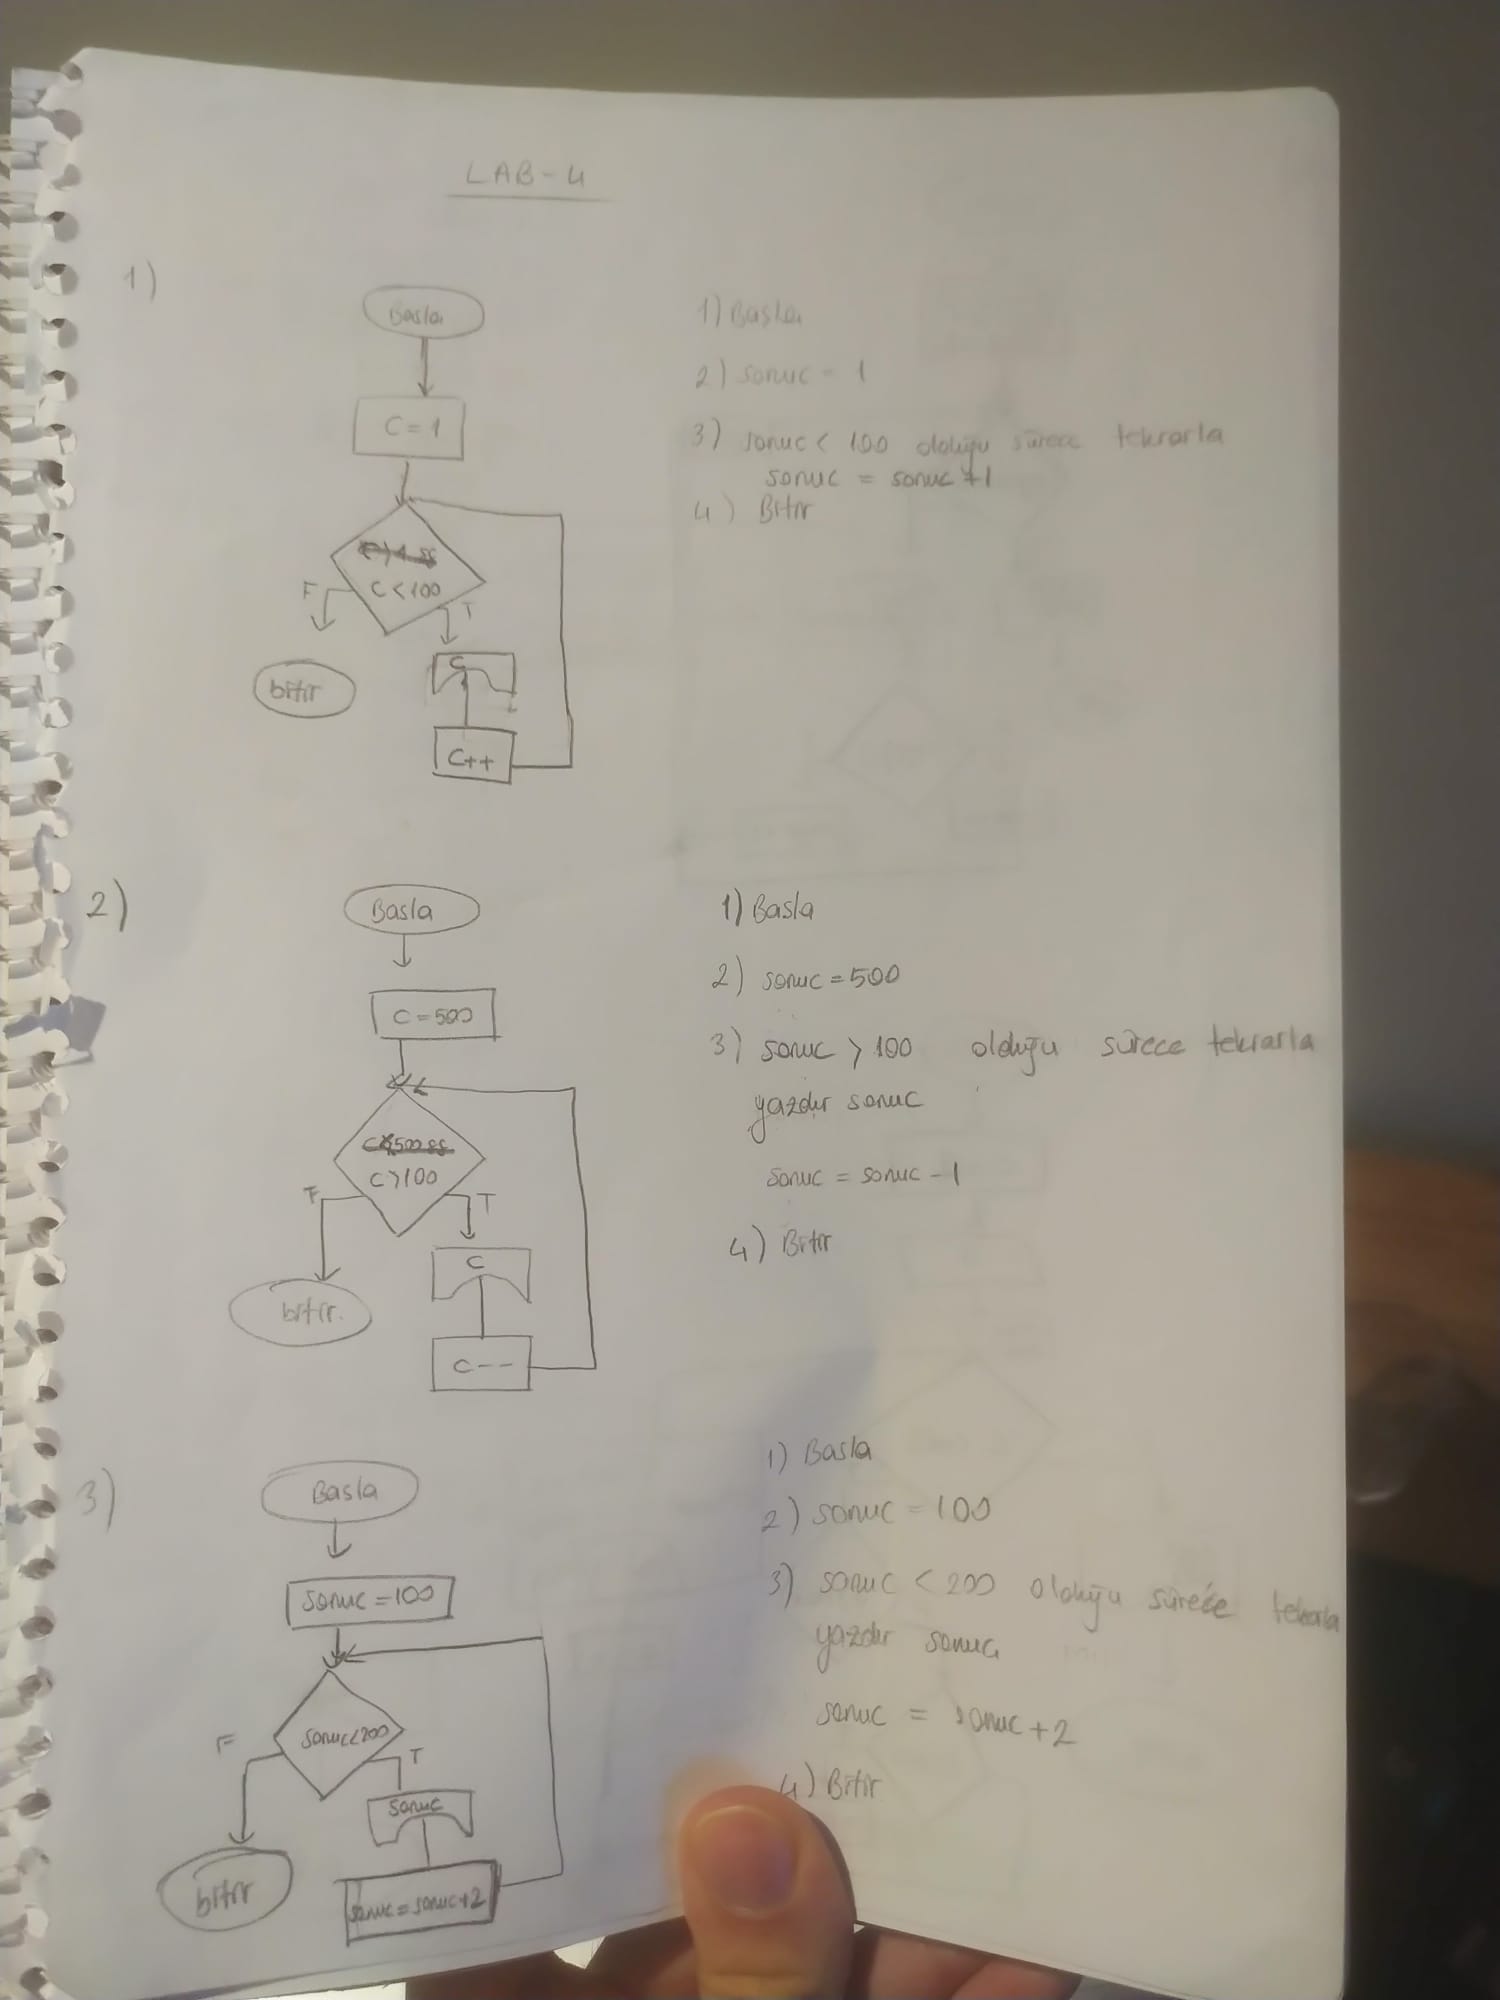 LAB-4
1)
Basla
C=1
C<100
F
T
C
bitir
C++
1) Basla
2) sonuc = 1
3) sonuc < 100 olduğu sürece tekrarla
sonuc = sonuc +1
4) Bitir
2)
Basla
C=500
C>100
F
T
C
bitir.
C--
1) Basla
2) sonuc=500
3) sonuc > 100 olduğu sürece tekrarla
yazdır sonuc
sonuc = sonuc -1
4) Bitir
3)
Basla
sonuc=100
sonuc<200
F
T
sonuc
bitir
sonuc=sonuc+2
1) Basla
2) sonuc = 100
3) sonuc < 200 olduğu sürece tekrarla
yazdır sonuc
sonuc = sonuc +2
4) Bitir